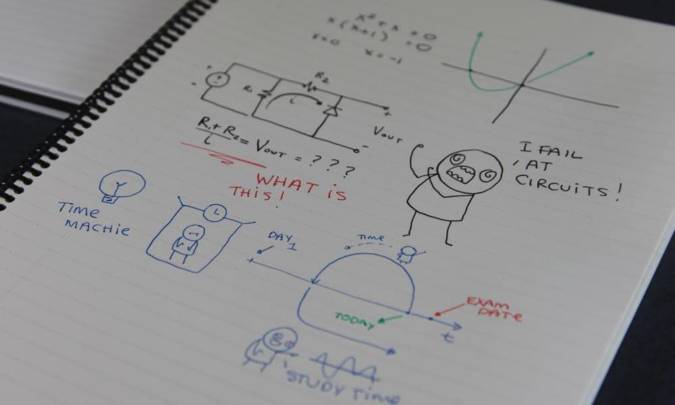 x² + x = 0
x(x+1) = 0
x=0 x=-1
R₂
R₁
i
+
-
Vout
R₁+R₂/i = Vout = ???
WHAT IS
THIS!
I FAIL
AT
CIRCUITS!
TIME
MACHIE
DAY
1
TIME
TODAY
EXAM
DATE
t
STUDY TIME